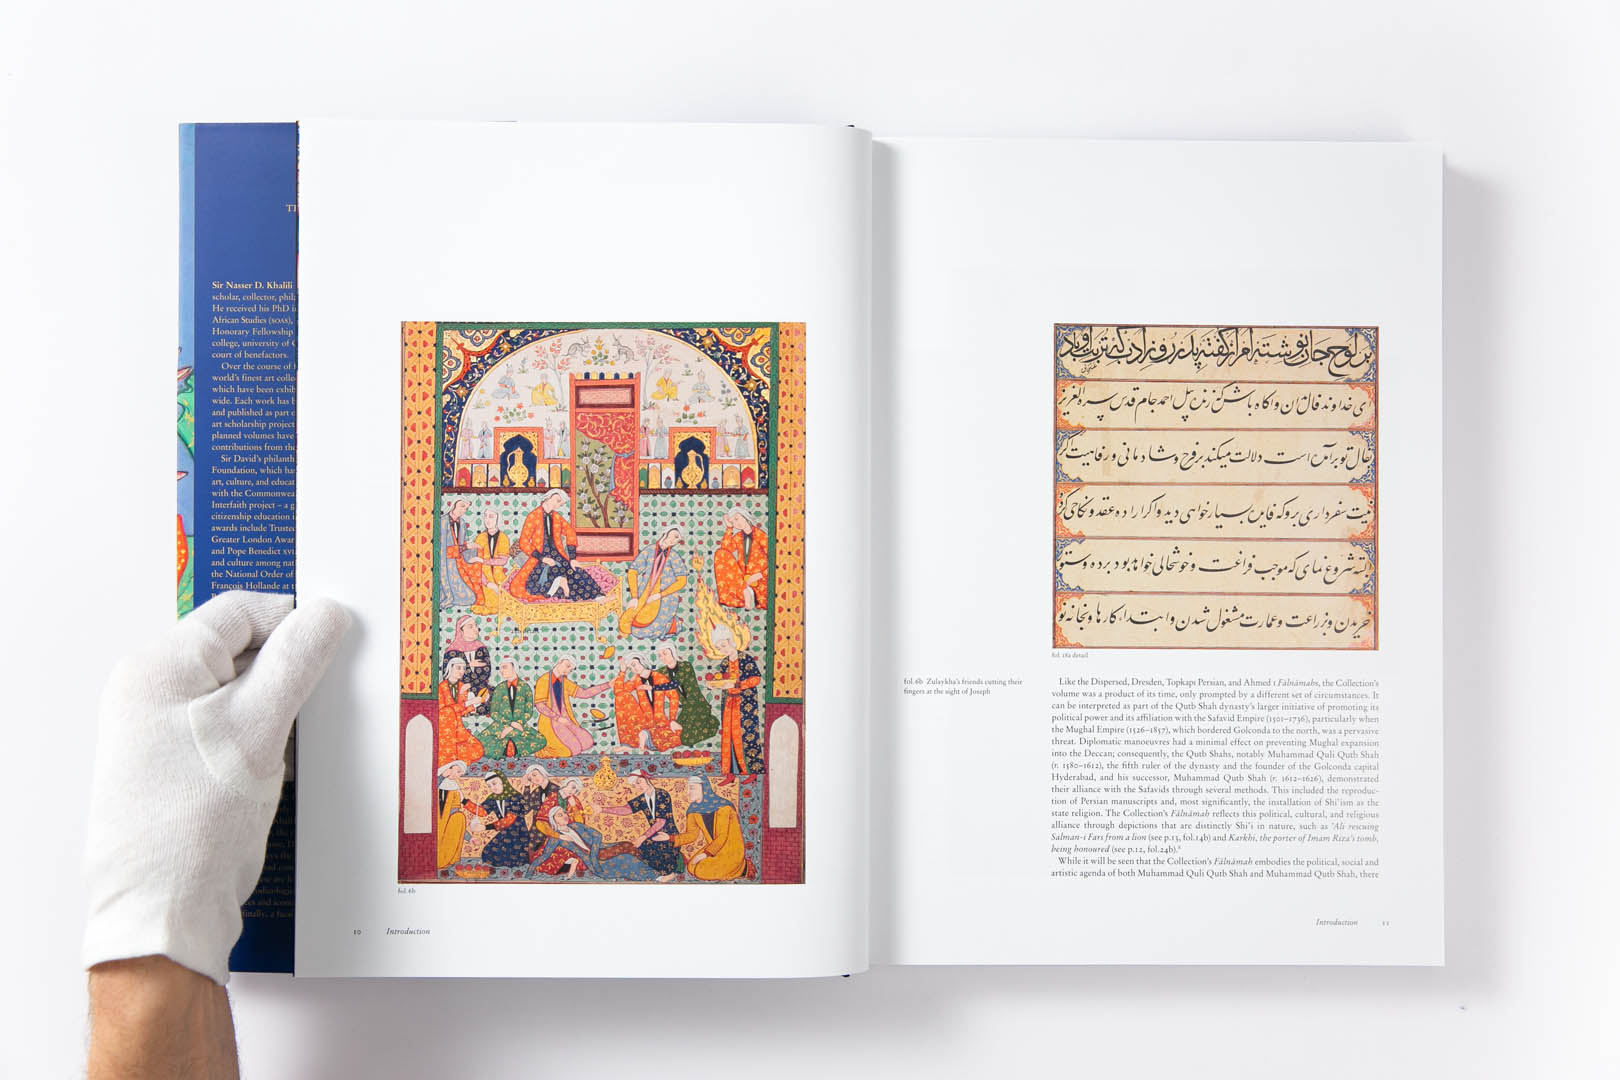 Sir Nasser D. Khalili
scholar, collector, phil
He received his PhD i
African Studies (SOAS),
Honorary Fellowship
college, university of
court of benefactors.
Over the course of
world's finest art colle
which have been exhib
wide. Each work has b
and published as part o
art scholarship project
planned volumes have
contributions from the
Sir David's philanth
Foundation, which ha
art, culture, and educat
with the Commonwea
Interfaith project – a g
citizenship education i
awards include Trustee
Greater London Awar
and Pope Benedict XVI
and culture among nat
the National Order of
François Hollande at t
fol. 6b
10 Introduction
بر لوح جان نوشته‌ام از گفته پدر روز ازل که تربت او باد
ای خداوند فال بدان و اکاه باش که زنده پیل احمد جام قدس سره العزیز
بفال تو برآمده است دلالت میکند بر فرح و شادمانی و رفاهیت اکر
نیت سفر داری برو که فایده بسیار خواهی دید و اکر اراده عقد و نکاحی کرده
البته شروع نمای که موجب فراغت و خوشحالی خواهد بود برده و ستور
خریدن و زراعت و عمارت مشغول شدن و ابتداء کارها و بخانه نو
fol. 18a detail
fol. 6b Zulaykha's friends cutting their
fingers at the sight of Joseph
Like the Dispersed, Dresden, Topkapı Persian, and Ahmed I Fālnāmahs, the Collection's
volume was a product of its time, only prompted by a different set of circumstances. It
can be interpreted as part of the Qutb Shah dynasty's larger initiative of promoting its
political power and its affiliation with the Safavid Empire (1501–1736), particularly when
the Mughal Empire (1526–1857), which bordered Golconda to the north, was a pervasive
threat. Diplomatic manoeuvres had a minimal effect on preventing Mughal expansion
into the Deccan; consequently, the Qutb Shahs, notably Muhammad Quli Qutb Shah
(r. 1580–1612), the fifth ruler of the dynasty and the founder of the Golconda capital
Hyderabad, and his successor, Muhammad Qutb Shah (r. 1612–1626), demonstrated
their alliance with the Safavids through several methods. This included the reproduc-
tion of Persian manuscripts and, most significantly, the installation of Shi'ism as the
state religion. The Collection's Fālnāmah reflects this political, cultural, and religious
alliance through depictions that are distinctly Shi'i in nature, such as 'Ali rescuing
Salman-i Fars from a lion (see p.13, fol.14b) and Karkhi, the porter of Imam Riza's tomb,
being honoured (see p.12, fol.24b).
While it will be seen that the Collection's Fālnāmah embodies the political, social and
artistic agenda of both Muhammad Quli Qutb Shah and Muhammad Qutb Shah, there
Introduction 11